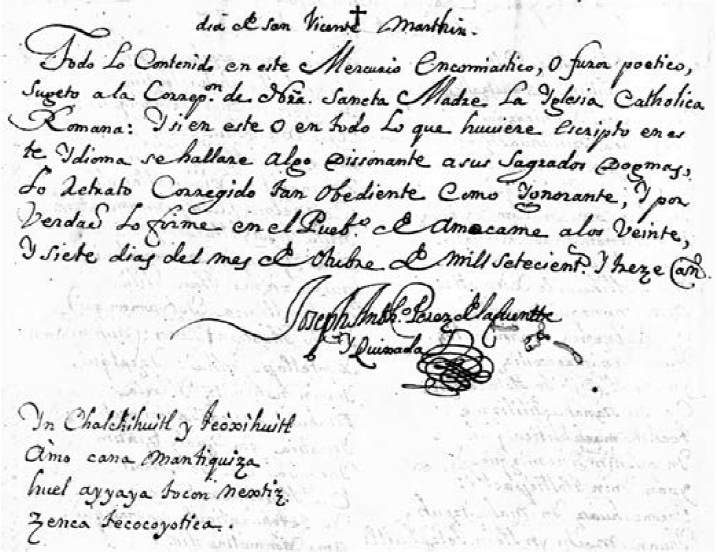 dia de san Vicente Marthir.
Todo Lo Contenido en este Mercurio Encomiastico, O furor poetico,
Sugeto a la Correpon. de Nra. Sancta Madre La Iglesia Catholica
Romana: Y si en este O en todo Lo que huviere Escripto en es
te Ydioma se hallare algo Dissonante a sus Sagrados Dogmas,
Lo Retrato Corregido tan Obediente Como Ygnorante, Y por
Verdad Lo firme en el Pueb.o de Amecame a los Veinte,
Y siete dias del mes de Otubre de Mill Setecient.s Y treze añ.
Joseph Anto. Perez de la fuentte
Y Quixada
Yn Chalchihuitl y Teoxihuitl
Amo cana Mantiquiza
huel ayyaya tocon Nextiz
Zenca Tecocoyotica.